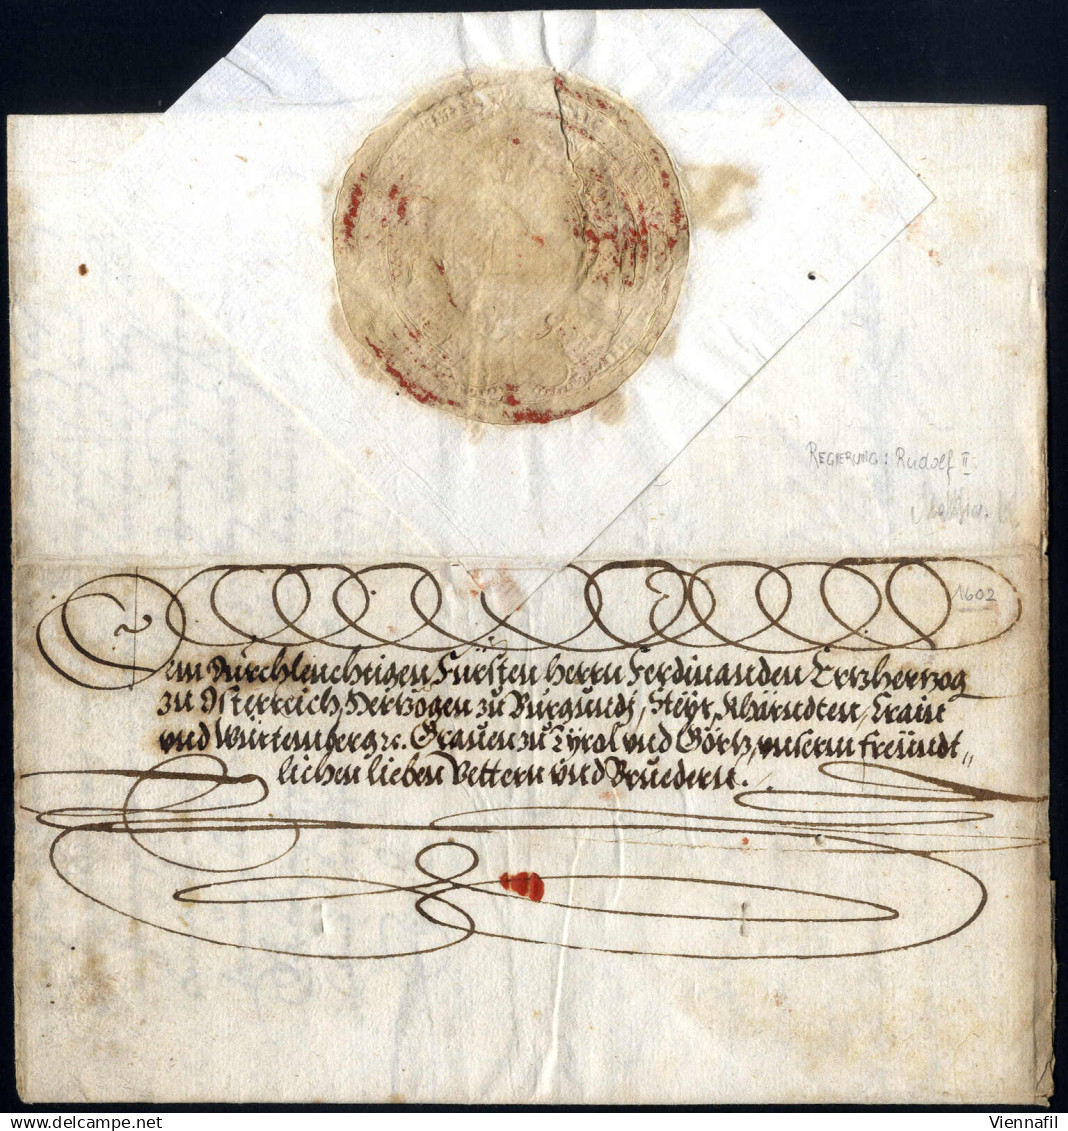 REGIERUNG: Rudolf II
1602
Dem Durchleuchtigen Fürsten Herrn Ferdinanden Ertzhertzog
zu Osterreich, Hertzogen zu Burgundj, Steyr, Khärndten, Crain
vnd Würtemberg ꝛc. Grauen zu Tyrol vnd Görtz, vnserm freündt„
lichen lieben Vettern vnd Bruedern.
Viennafil